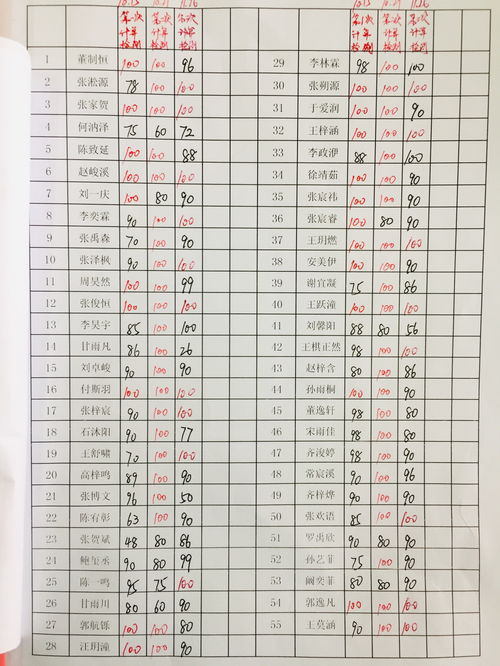 10.15 10.21 11.26 10.15 10.21 11.26
第1次计算检测 第二次计算检测 第三次计算检测 第1次计算检测 第二次计算检测 第三次计算检测
1 董制恒 100 100 96 29 李林霖 98 100 100
2 张淞源 78 100 100 30 张朔源 100 100 100
3 张家贺 100 100 100 31 于爱润 100 100 90
4 何汭泽 75 60 72 32 王梓涵 100 100 100
5 陈致延 100 100 88 33 李政洢 88 100 100
6 赵峻溪 100 100 100 34 徐靖茹 100 100 90
7 刘一庆 100 80 90 35 张宸祎 100 100 90
8 李奕霖 90 100 100 36 张宸睿 100 80 90
9 张禹森 70 100 90 37 王玥燃 100 100 100
10 张泽枫 90 100 100 38 安美伊 100 100 90
11 周昊然 100 100 99 39 谢宜凝 75 100 86
12 张俊恒 100 100 100 40 王跃潼 100 100 100
13 李昊宇 85 100 100 41 刘馨阳 88 80 56
14 甘雨凡 86 100 26 42 王棋正然 98 100 100
15 刘卓峻 90 100 90 43 赵梓含 80 100 86
16 付斯羽 100 100 100 44 孙雨桐 100 100 90
17 张梓宸 90 100 100 45 董逸轩 98 100 80
18 石沐阳 90 100 77 46 宋雨佳 98 100 80
19 王舒啸 70 100 100 47 齐浚婷 98 100 90
20 高梓鸣 89 100 90 48 常宸溪 90 100 96
21 张博文 96 100 50 49 齐梓烨 90 100 90
22 陈宥彰 63 100 90 50 张欢语 85 100 100
23 张贺斌 48 80 86 51 罗禹欣 90 80 90
24 鲍玺丞 90 80 99 52 孙艺菲 75 100 90
25 陈一鸣 95 75 100 53 阚奕菲 80 80 90
26 甘雨川 80 60 90 54 郭逸凡 100 100 100
27 郭航铄 100 100 80 55 王莫涵 90 100 100
28 汪玥潼 100 100 90